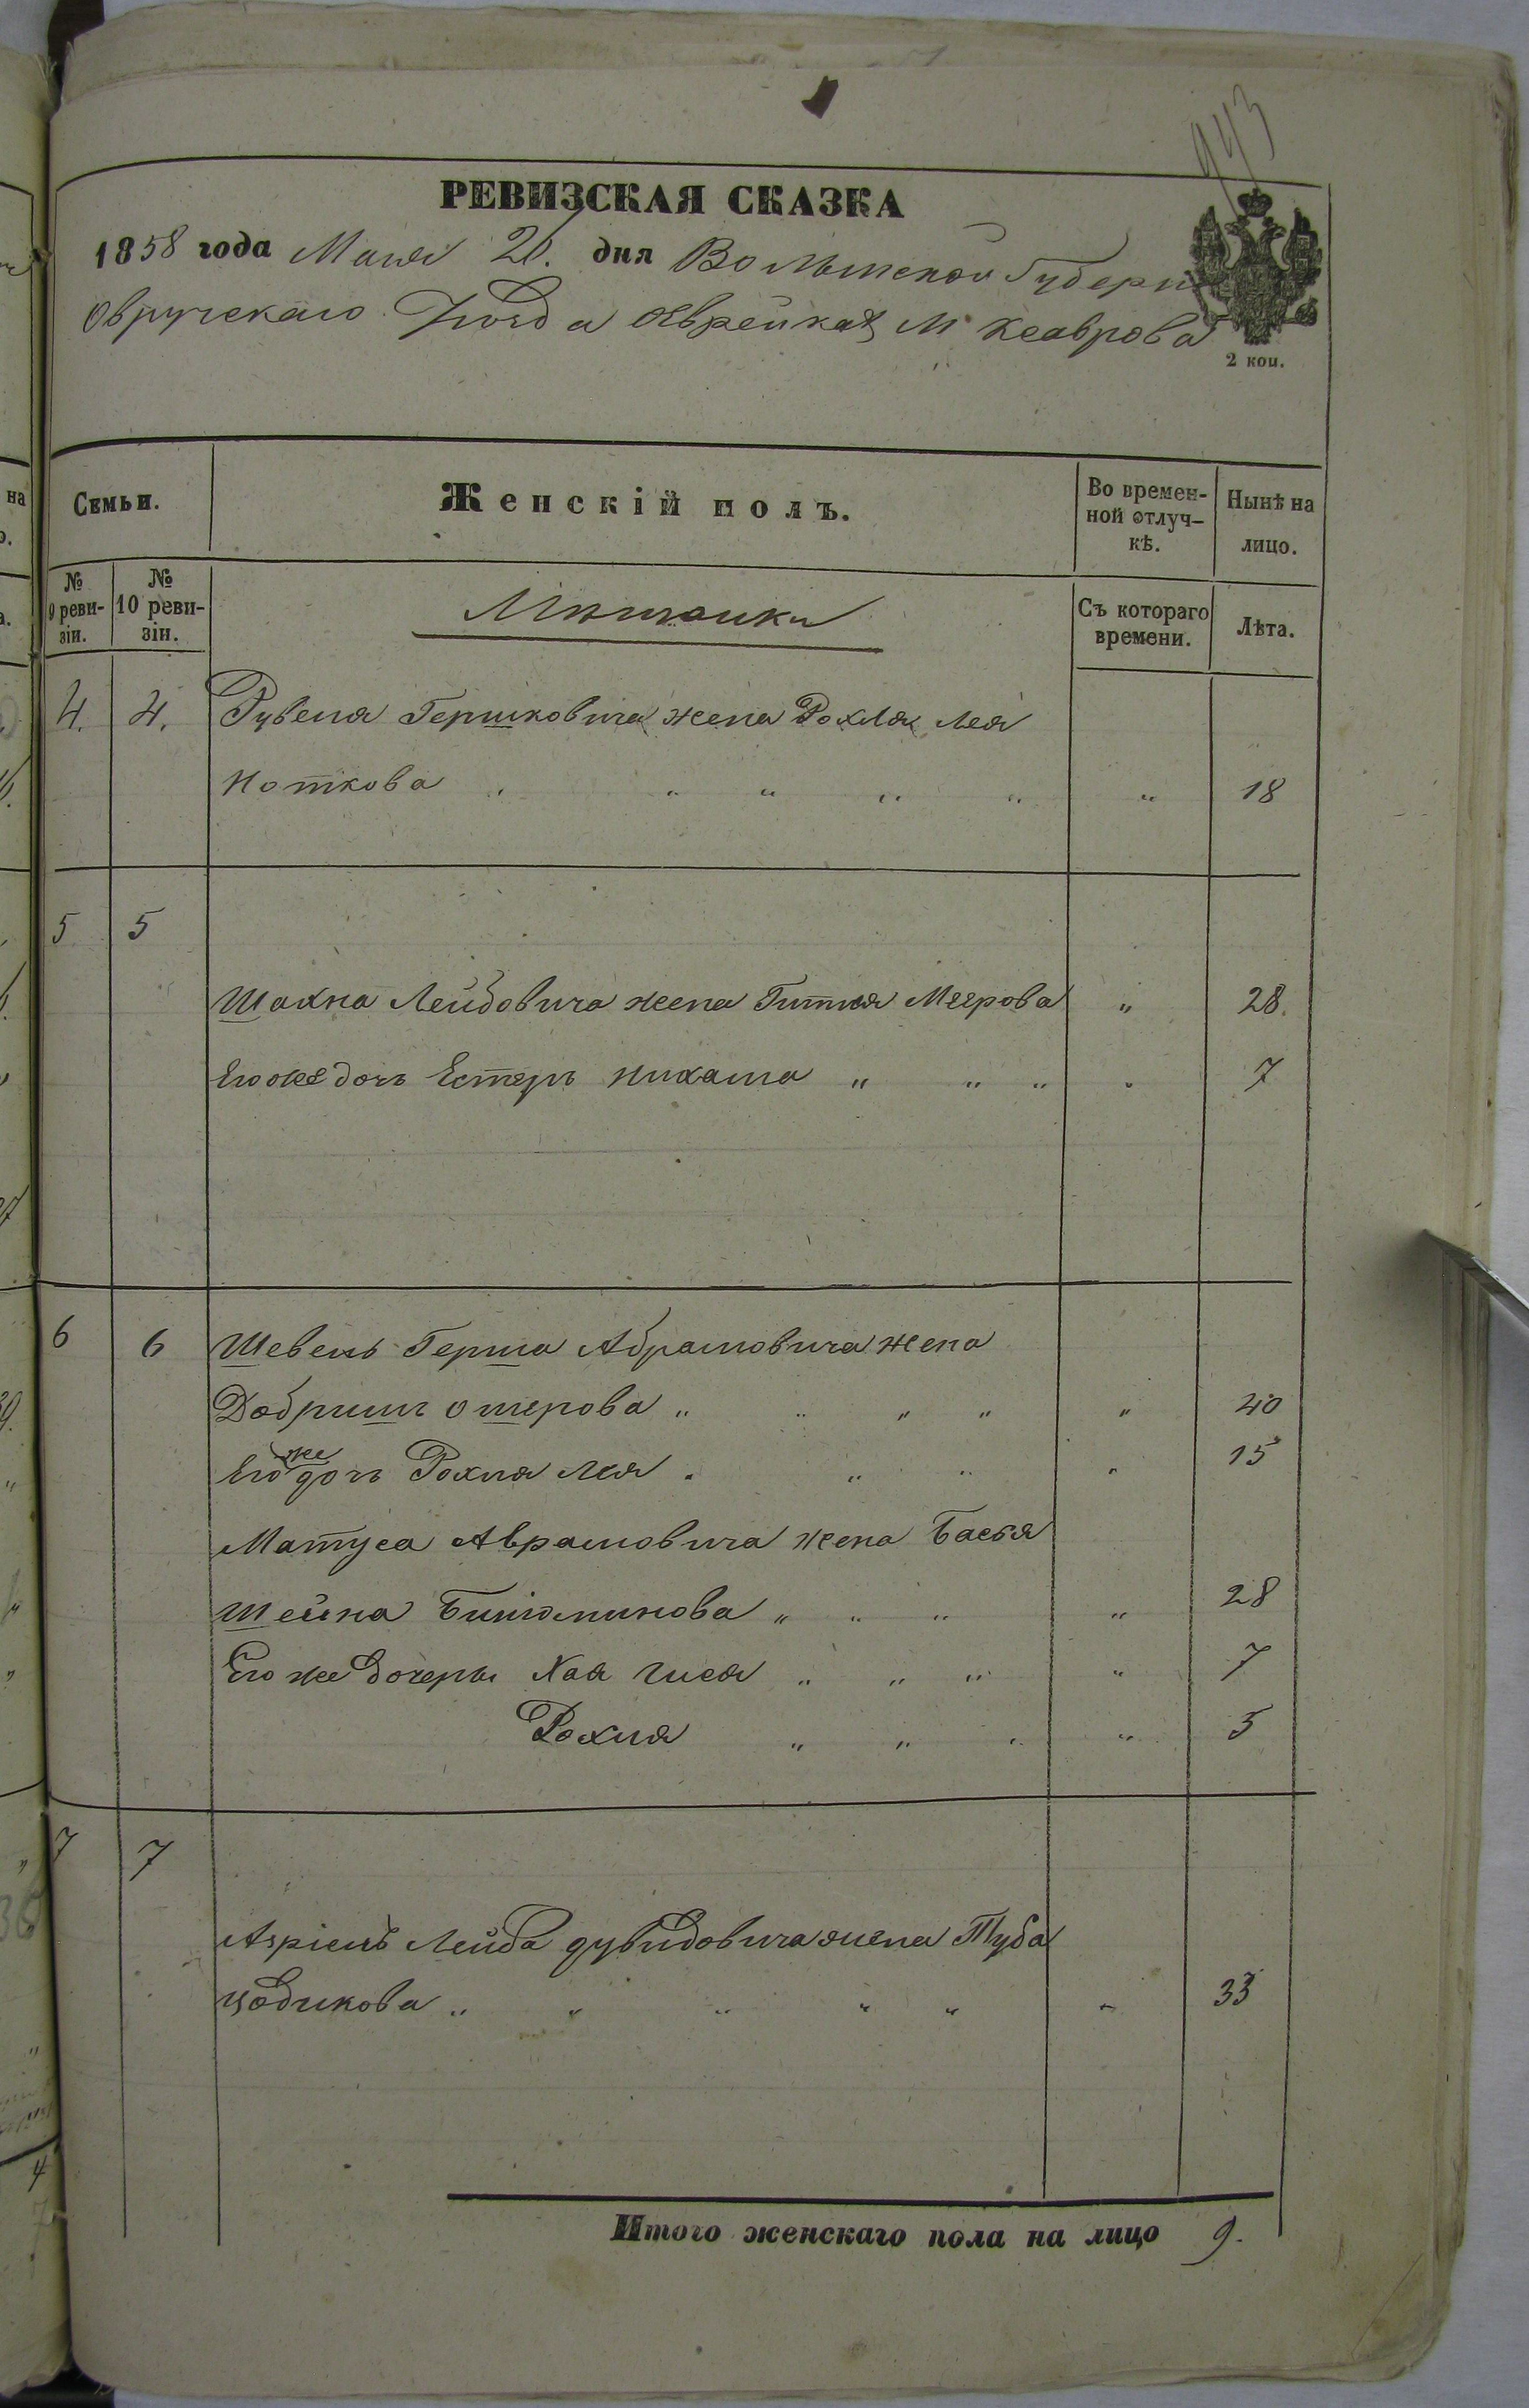 943
РЕВИЗСКАЯ СКАЗКА
1858 года Маия 20. дня Волынской Губерніи
Овручскаго Уѣзда Еврейка М
2 коп.
Семьи.
Женскій полъ.
Во времен-
ной отлуч-
кѣ.
Нынѣ на
лицо.
№
9 реви-
зіи.
№
10 реви-
зіи.
Мѣщанки
Съ котораго
времени.
Лѣта.
4. 4. Рувена Гершковича жена Рохля Лея
Ноткова " " " " " " 18
5 5
Шахна Лейбовича жена Гитля Меерова " 28.
Его же дочь Естерь Нихама " " " " 7
6 6 Шевель Герша Абрамовича жена
Добришъ Ошерова " " " " " 40
Его же дочь Рохля Лея " " " " 15
Матуса Аврамовича жена Бася
Шейна Биніоминова " " " " 28
Его же дочеры Хая Гися " " " " 7
Рохля " " " " 5
7 7
Азріель Лейба Дувидовича жена Туба
Цодикова " " " " " " 33
Итого женскаго пола на лицо 9.